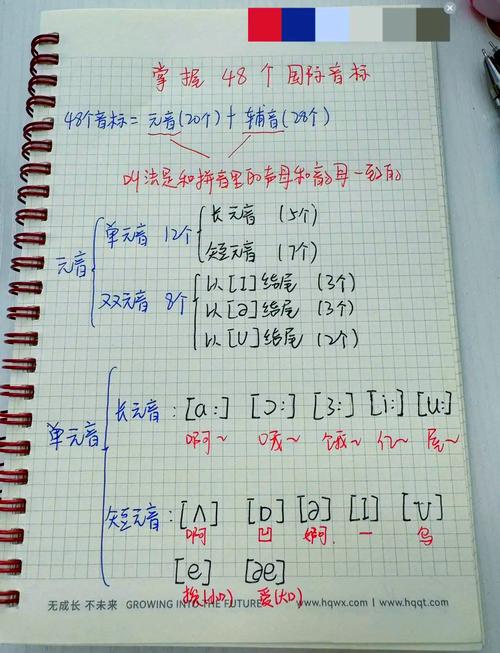 掌握48个国际音标
48个音标 = 元音(20个) + 辅音(28个)
叫法是和拼音里的声母和韵母一致的
元音
单元音 12个
长元音 (5个)
短元音 (7个)
双元音 8个
以[I]结尾 (3个)
以[ə]结尾 (3个)
以[U]结尾 (2个)
单元音
长元音: [ɑ:] [ɔ:] [3:] [i:] [u:]
啊~ 哦~ 饿~ 亿~ 屋~
短元音: [Λ] [ɒ] [ə] [I] [ʊ]
啊 凹 婀 一 乌
[e] [æ]
挨(小口) 爱(大口)
无成长 不未来 GROWING INTO THE FUTURE www.hqwx.com www.hqqt.com